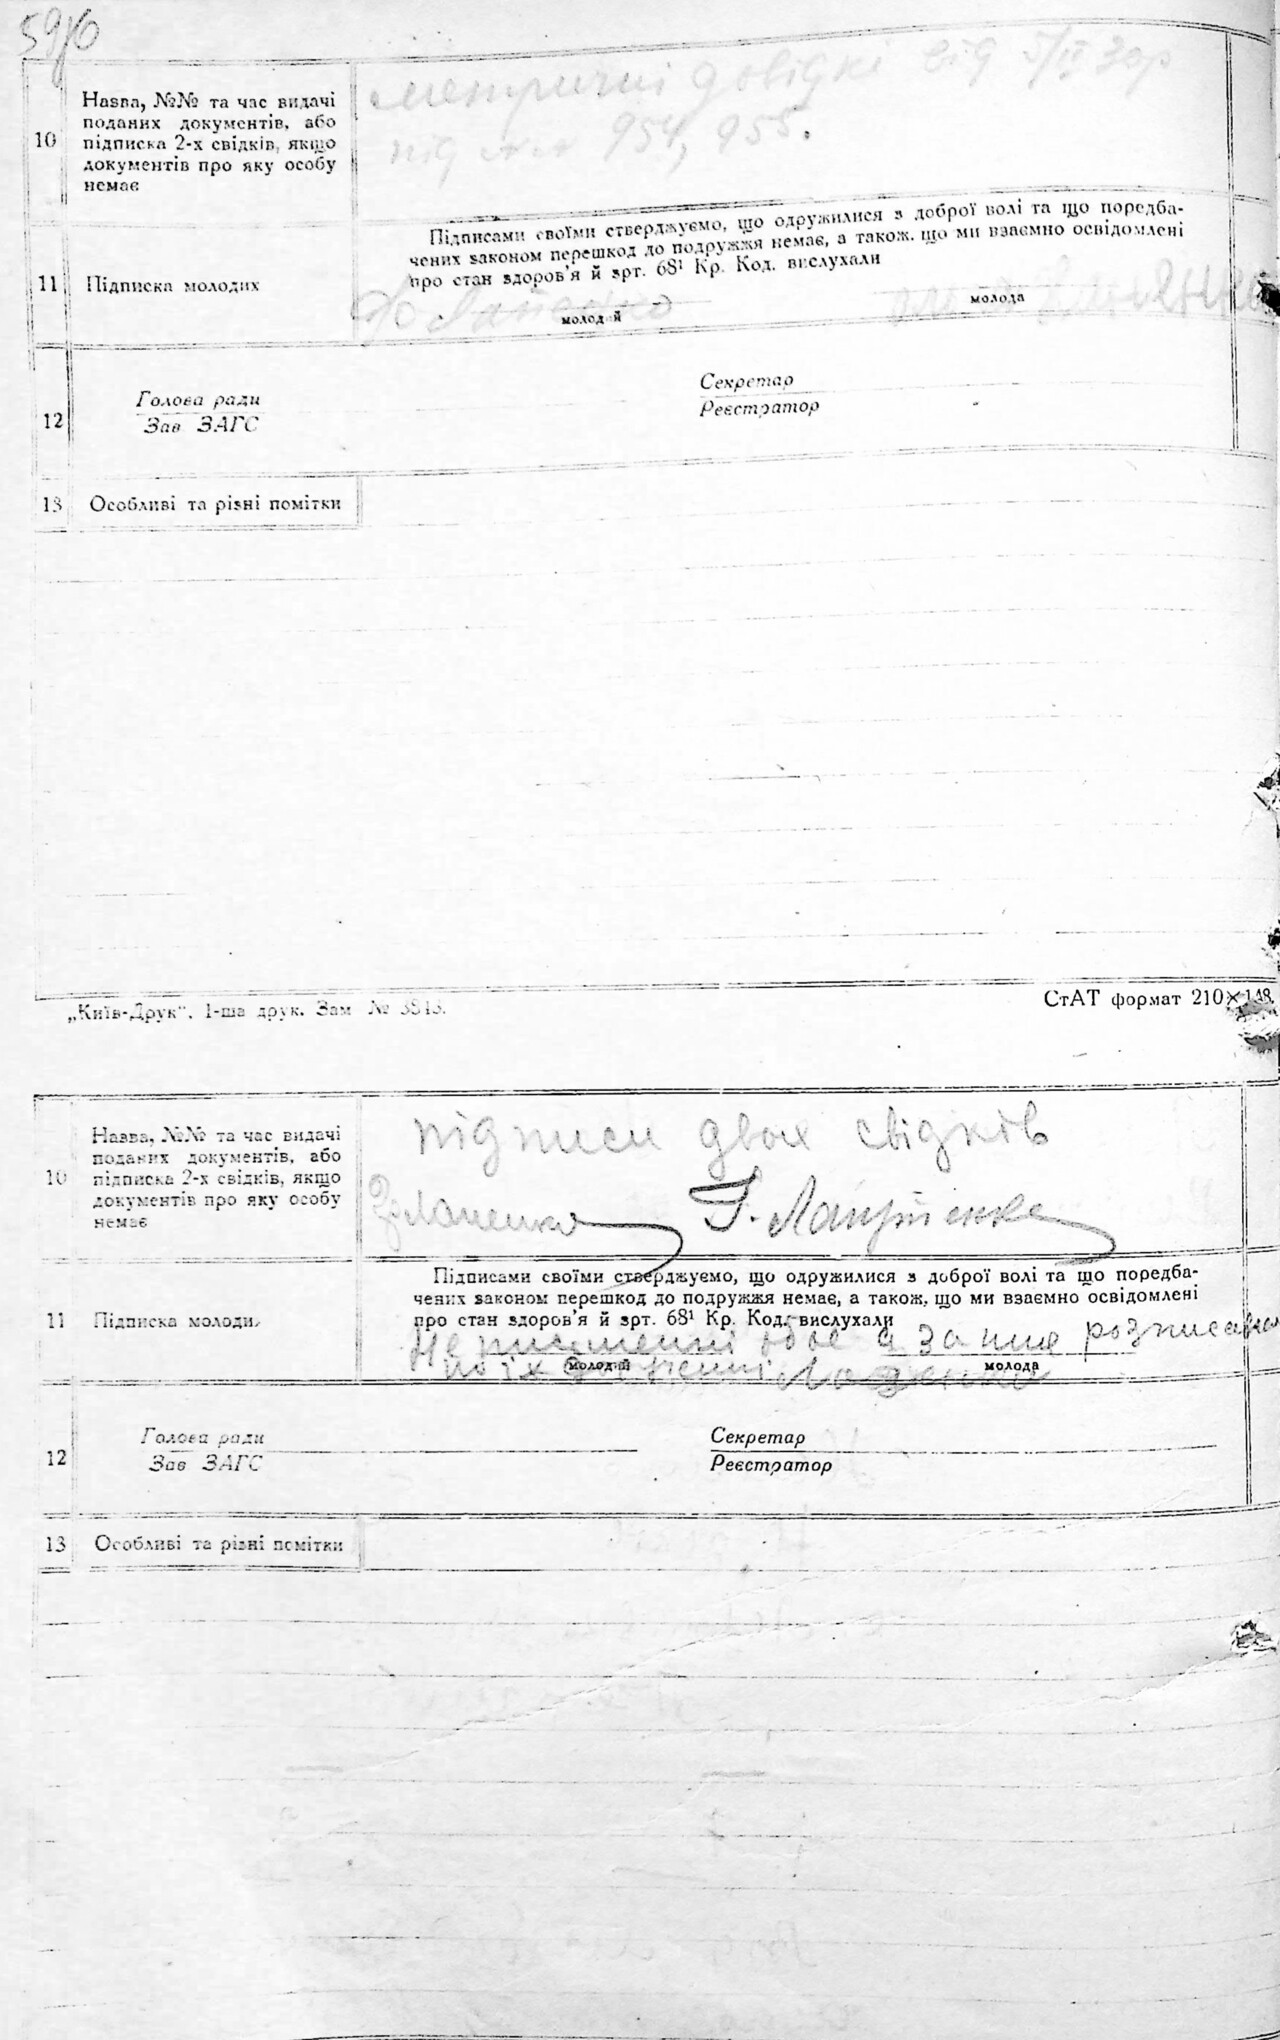 59/6
10
Назва, №№ та час видачі
поданих документів, або
підписка 2-х свідків, якщо
документів про яку особу
немає
метричні довідкі від 5/II 30р
під №№ 954, 955.
11
Підписка молодих
Підписами своїми стверджуємо, що одружилися з доброї волі та що поредба-
чених законом перешкод до подружжя немає, а також, що ми взаємно освідомлені
про стан здоров'я й зрт. 68¹ Кр. Код. вислухали
молодий
молода
12
Голова ради
Зав ЗАГС
Секретар
Реєстратор
13
Особливі та різні помітки
„Київ-Друк". 1-ша друк. Зам № 3813.
СтАТ формат 210×148.
10
Назва, №№ та час видачі
поданих документів, або
підписка 2-х свідків, якщо
документів про яку особу
немає
підписи двох свідків
11
Підписка молоди
Підписами своїми стверджуємо, що одружилися з доброї волі та що поредба-
чених законом перешкод до подружжя немає, а також, що ми взаємно освідомлені
про стан здоров'я й зрт. 68¹ Кр. Код. вислухали
Не писменні обоє а за них розписався
по їх
молодий
молода
12
Голова ради
Зав ЗАГС
Секретар
Реєстратор
13
Особливі та різні помітки